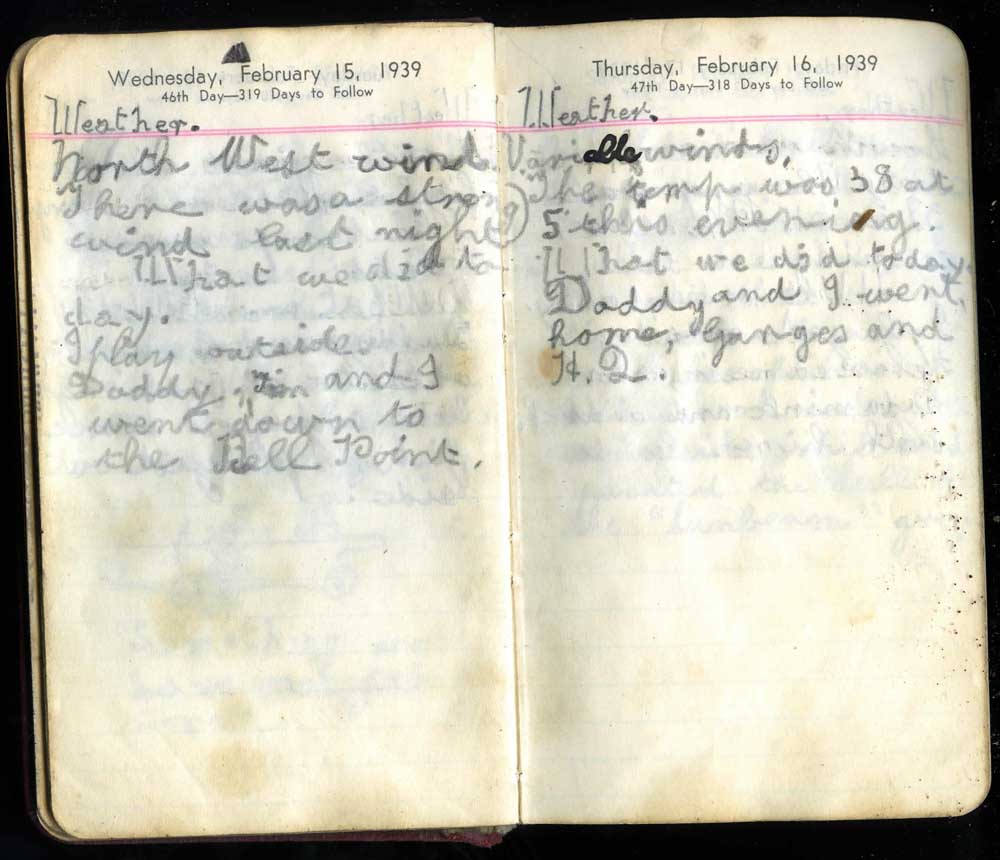 Wednesday, February 15, 1939
46th Day—319 Days to Follow
Weather.
North West wind.
There was a strong
wind last night
What we did to
day.
I play outside.
Daddy, Jim and I
went down to
the Bell Point.
Thursday, February 16, 1939
47th Day—318 Days to Follow
Weather.
Varible winds.
The temp was 38 at
5 this evening.
What we did today.
Daddy and I went
home, Ganges and
H. Q.